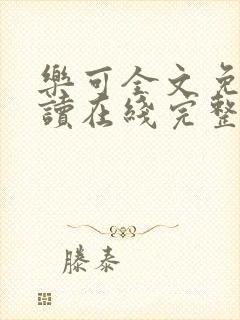 樂可全文免
讀在綫完整
滕泰